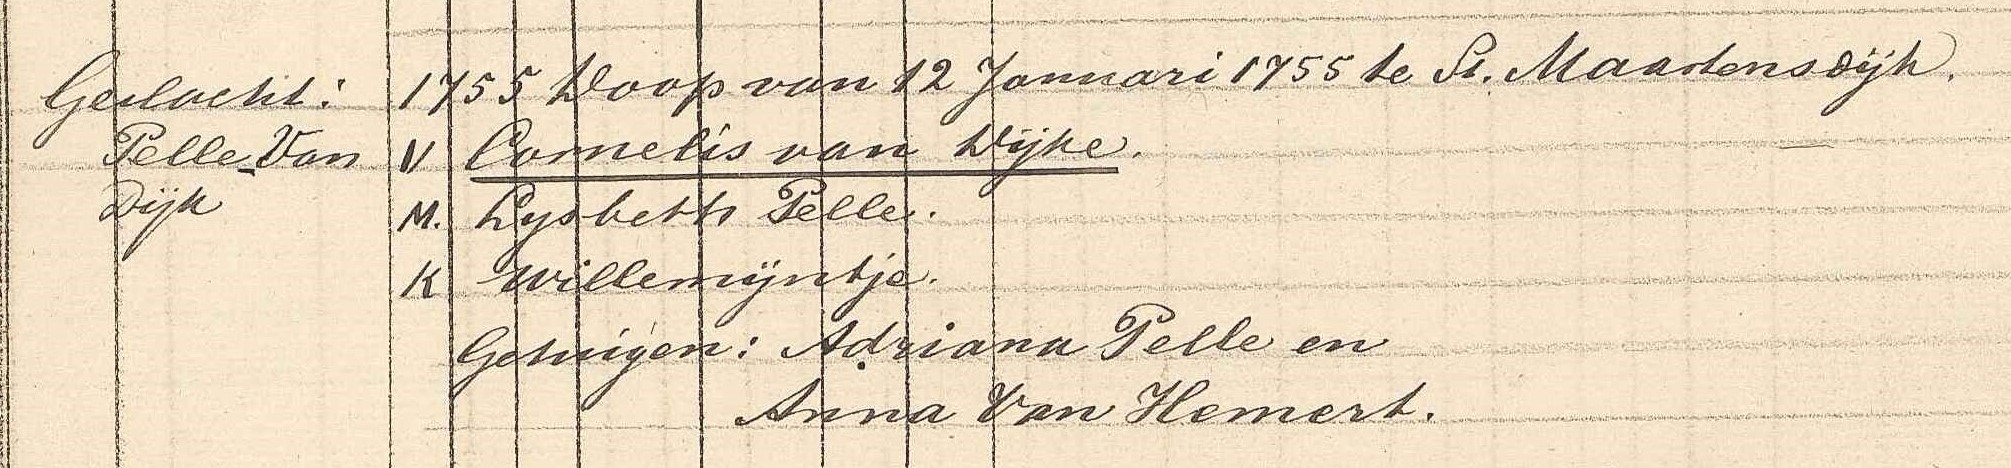 Geslacht: 1755 Doop van 12 Januari 1755 te St. Maartensdijk.
Pelle-Van V Cornelis van Dijke.
Dijk M. Lysbeth Pelle.
K Willemijntje.
Getuigen: Adriana Pelle en
Anna Van Hemert.